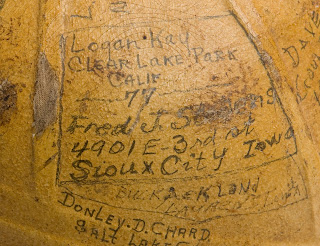 Logan Kay
Clear Lake Park
Calif
77
Fred J. Stevens
4901 E-3rd St
Sioux City Iowa
DONLEY.D.CHARD
SALT LAKE
DAVE